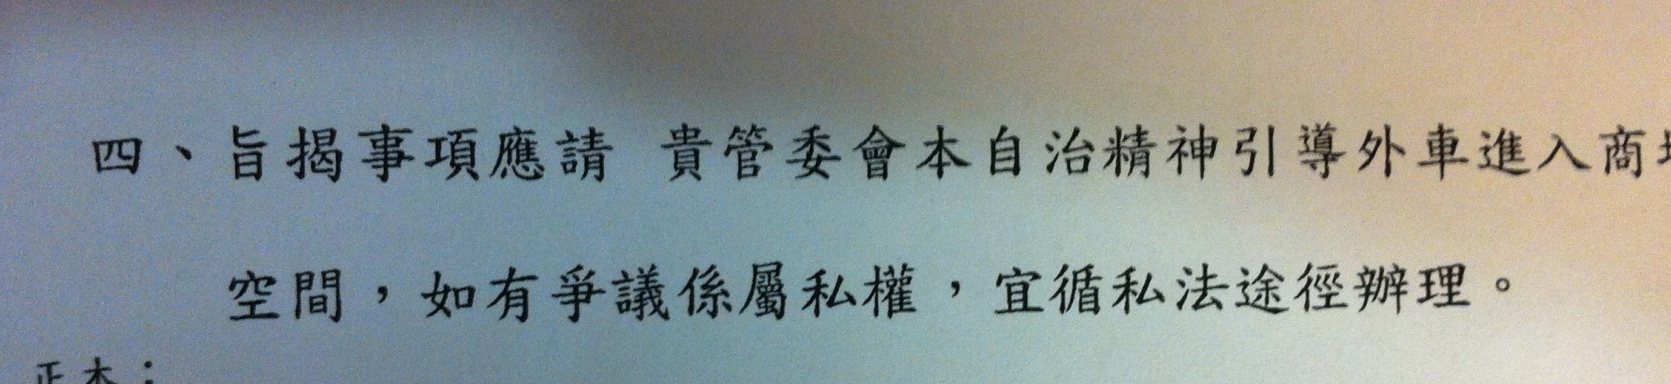 四、旨揭事項應請 貴管委會本自治精神引導外車進入商場
空間,如有爭議係屬私權,宜循私法途徑辦理。
正本: